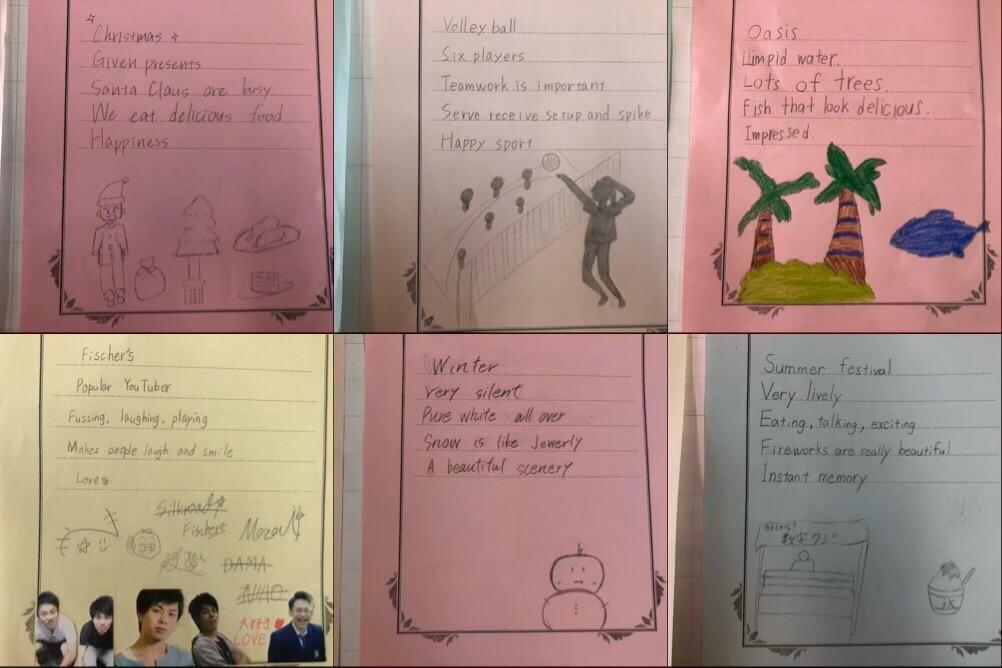 Christmas
Given presents
Santa Claus are busy
We eat delicious food
Happiness
Volleyball
Six players
Teamwork is important
Serve receive setup and spike
Happy sport
Oasis
Limpid water.
Lots of trees.
Fish that look delicious.
Impressed.
Fischer's
Popular YouTuber
Fussing, laughing, playing
Makes people laugh and smile
Love
Silkroad
Fischer's
DAMA
大好き
LOVE
Winter
Very silent
Pure white all over
Snow is like Jewerly
A beautiful scenery
Summer festival
Very lively
Eating, talking, exciting
Fireworks are really beautiful
Instant memory
数字クジ
氷